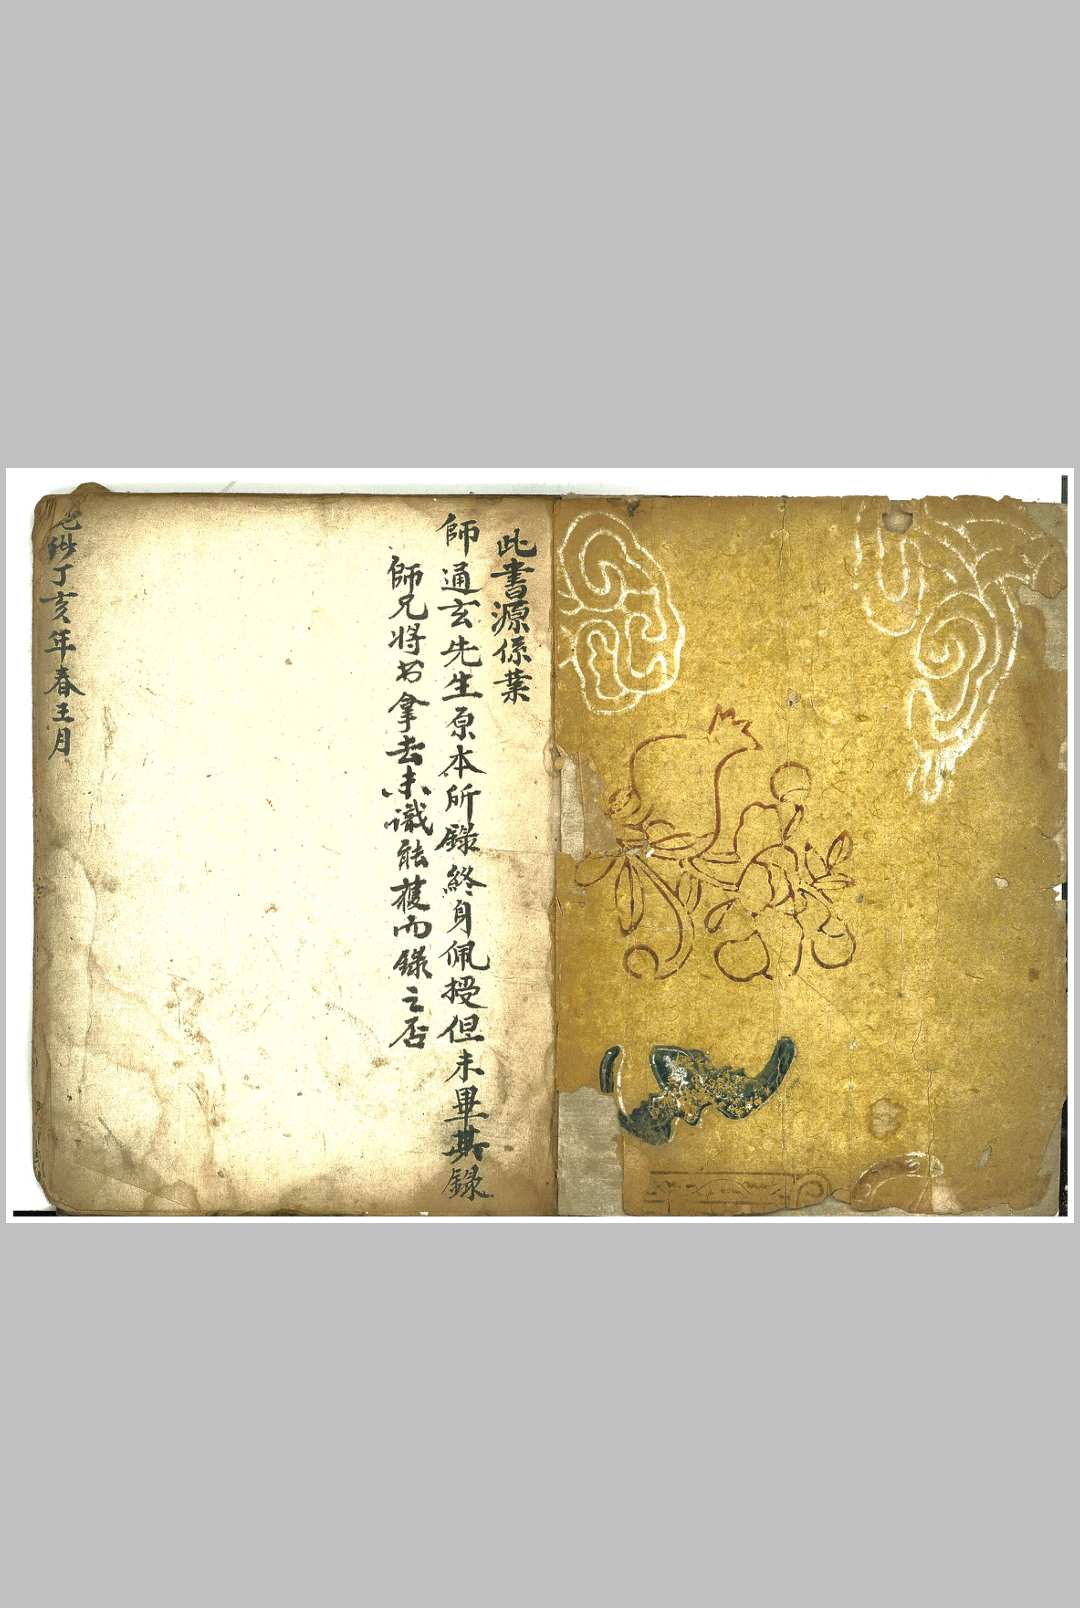 此書源係葉
師通玄先生原本所錄終身佩授但未畢其錄
師兄将书拿去未識能獲而錄之否
光緒丁亥年春王月